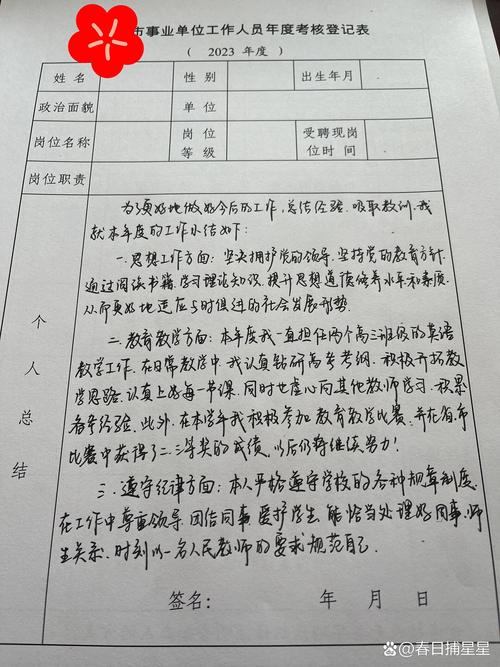 市事业单位工作人员年度考核登记表
（ 2023 年度 ）
姓名 性别 出生年月
政治面貌 单位
岗位名称 岗位等级 受聘现岗位时间
岗位职责
个人总结
为了更好地做好今后的工作，总结经验、吸取教训，我
就本年度的工作小结如下：
一.思想工作方面：坚决拥护党的领导，坚持党的教育方针，
通过阅读书籍，学习理论知识，提升思想道德修养水平和素质，
从而更好地适应与时俱进的社会发展形势。
二.教育教学方面：本年度我一直担任两个高三班级的英语
教学工作，在日常教学中，我认真钻研高考考纲，积极开拓教
学思路，认真上好每一节课，同时也虚心向其他教师学习，积累
备考经验，此外，在本学年我积极参加教育教学比赛，并在省、市
比赛中获得了二、三等奖的成绩，以后仍将继续努力！
三.遵守纪律方面：本人严格遵守学校的各种规章制度，
在工作中尊重领导，团结同事，爱护学生，能恰当处理好同事、师
生关系，时刻以一名人民教师的要求规范自己。
签名： 年 月 日
Bai 百家号/春日捕星星